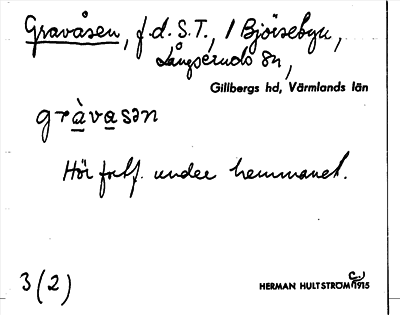 Gravåsen, f.d. S.T., / Bjöisebyn,
Långseruds sn,
Gillbergs hd, Värmlands län
gràvasən
Hör fortf. under hemmanet.
3(2)
HERMAN HULTSTRÖM c:a 1915